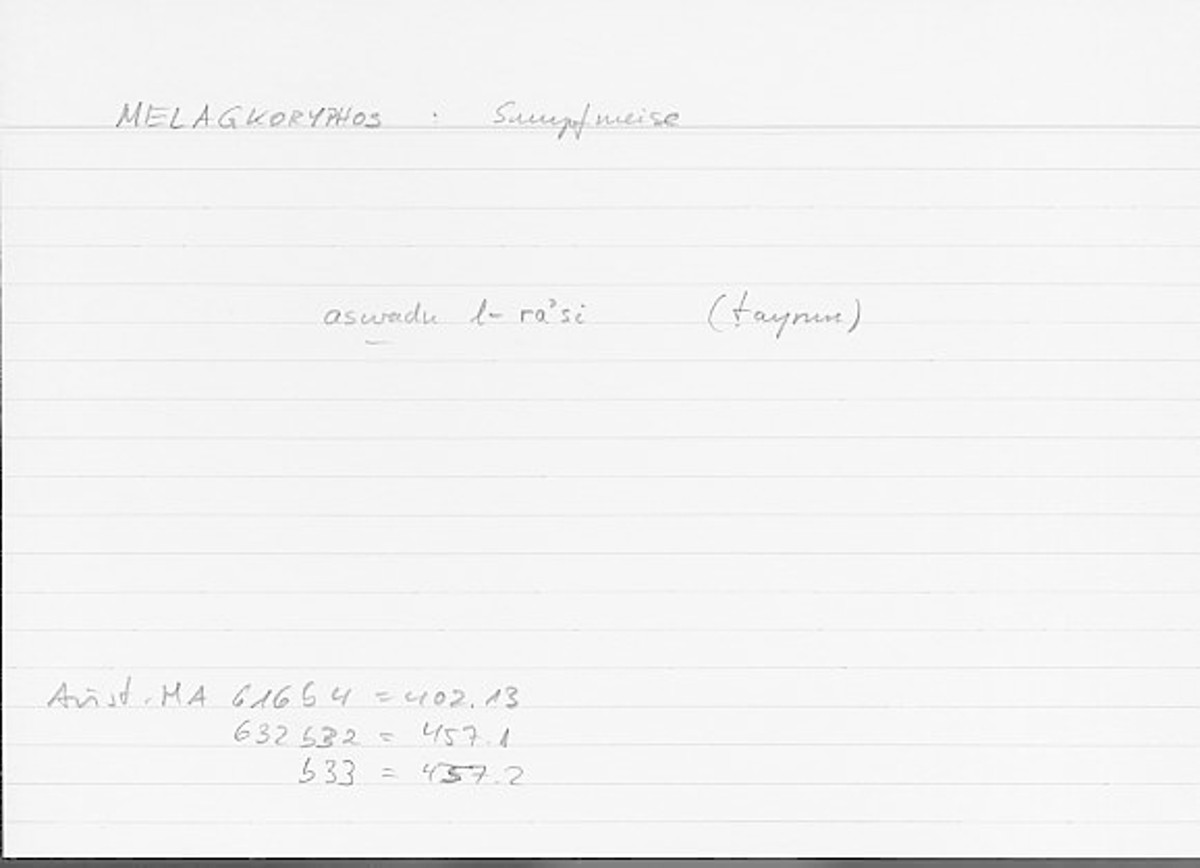 MELAGKORYPHOS : Sumpfmeise
aswadu l-ra'si (ṭayrun)
Arist. MA 616 b 4 = 402.13
632 b 32 = 457.1
b 33 = 457.2